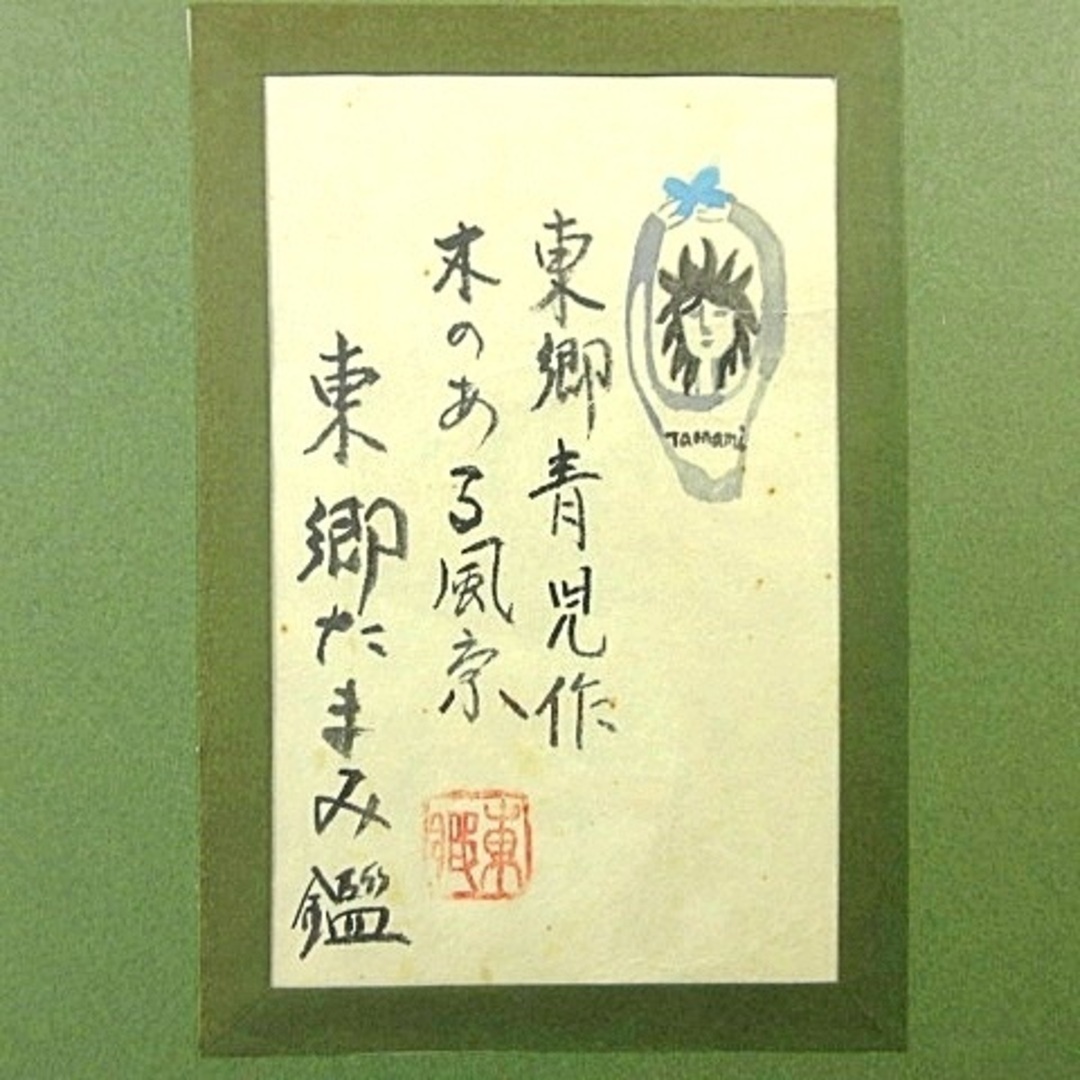 東郷青児作
木のある風景
東郷たまみ鑑
TAMAMI
東郷